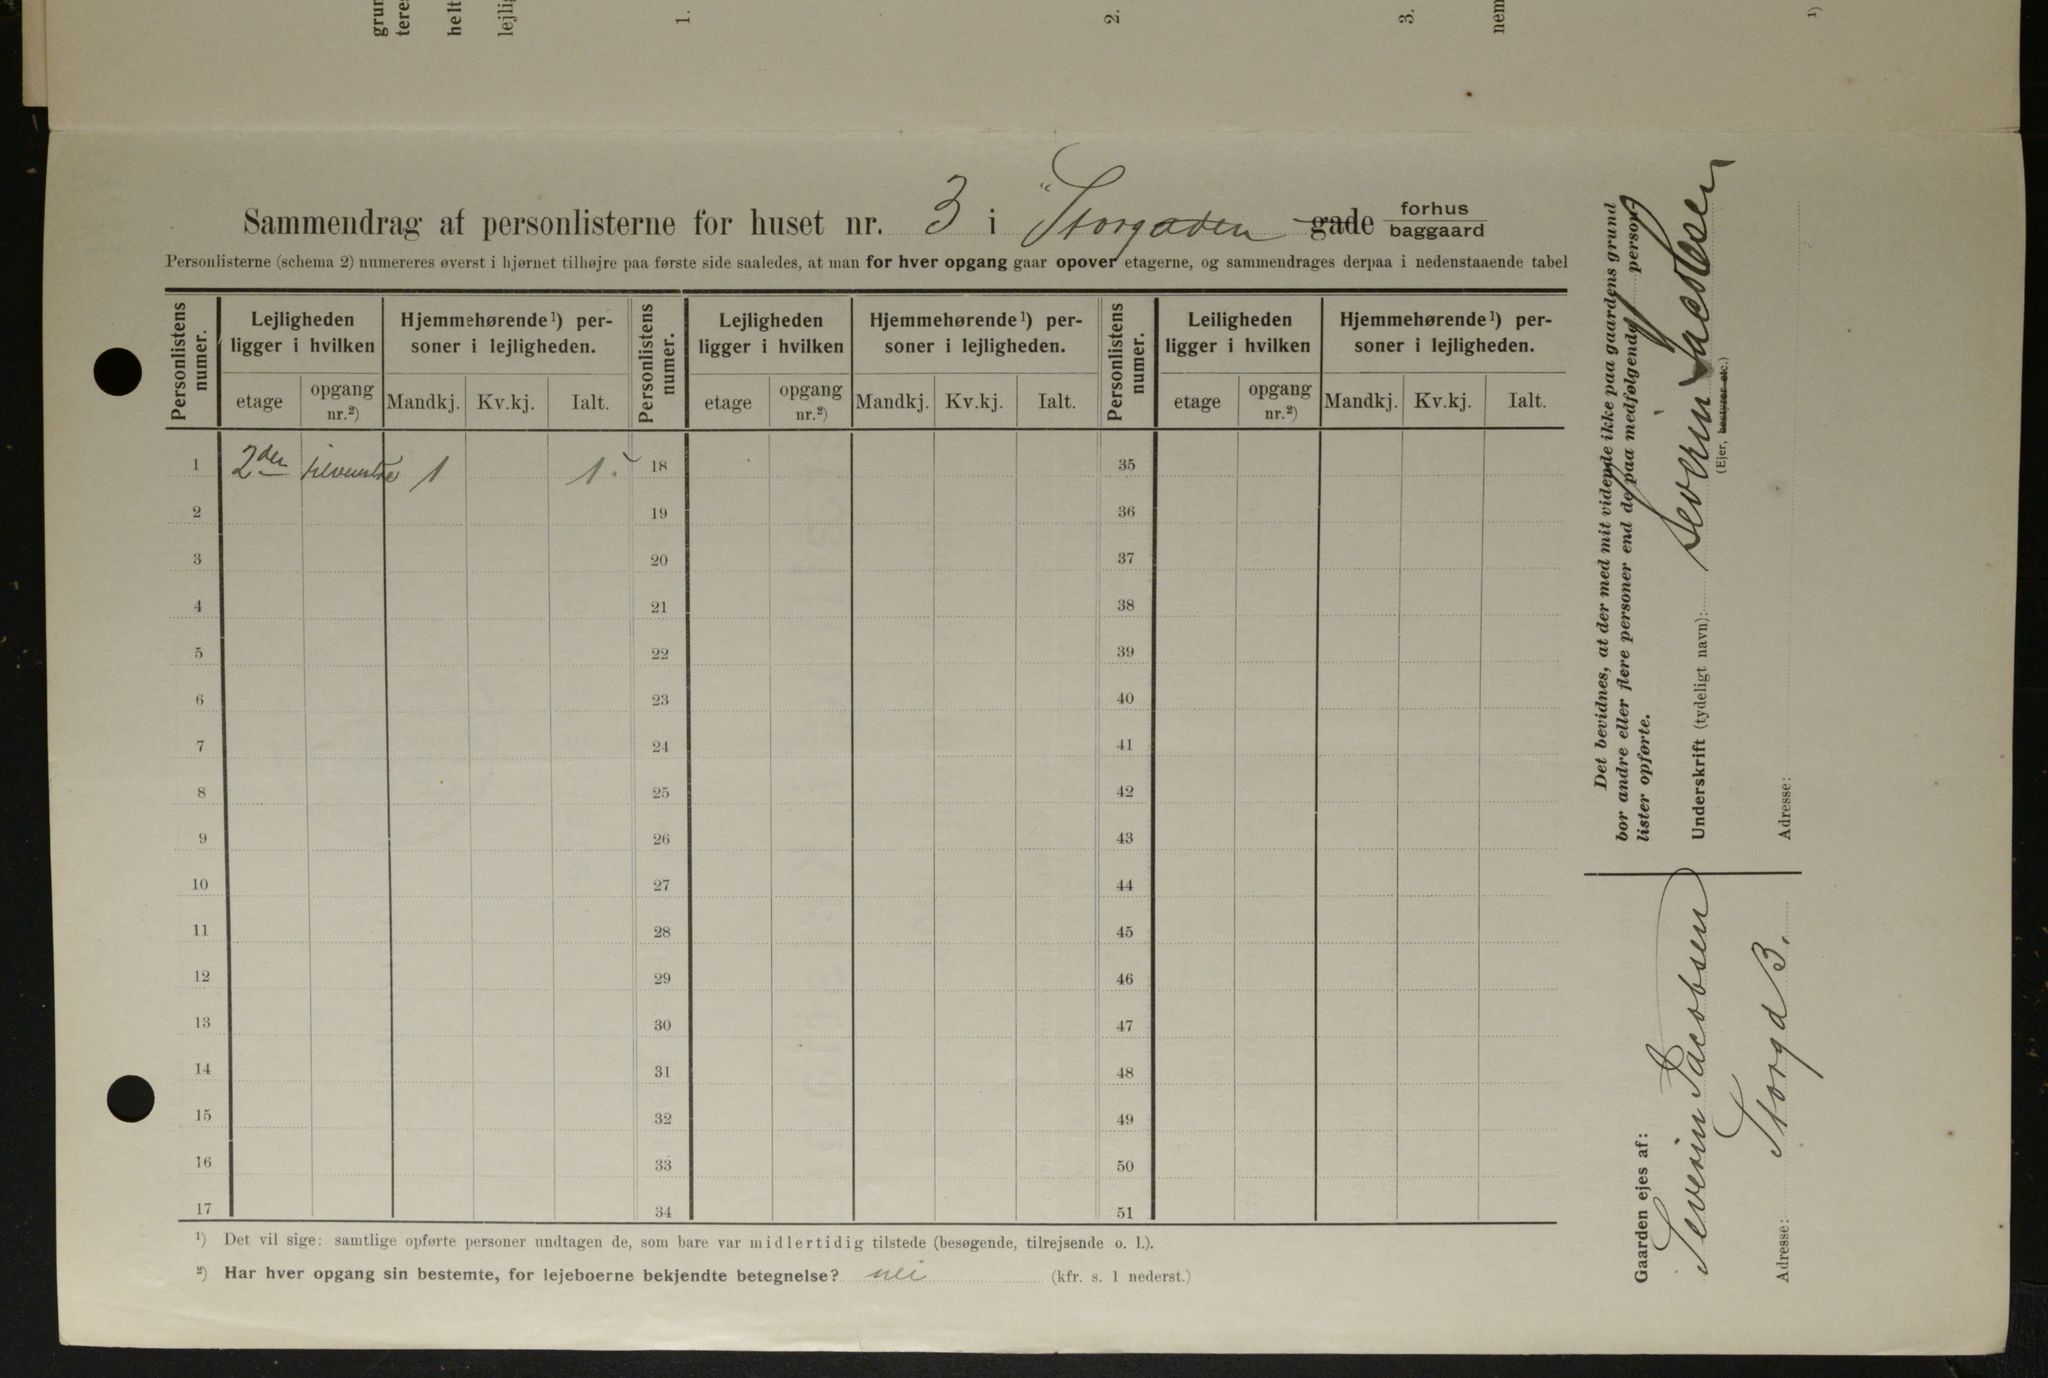 grun
tere
helt
lejlig
1.
2.
3.
nem
1)
Sammendrag af personlisterne for huset nr. 3 i Storgaden gade forhus
baggaard
Personlisterne (schema 2) numereres øverst i hjørnet tilhøjre paa første side saaledes, at man for hver opgang gaar opover etagerne, og sammendrages derpaa i nedenstaaende tabel
Personlistens numer. Lejligheden ligger i hvilken Hjemmehørende 1) personer i lejligheden. Personlistens numer. Lejligheden ligger i hvilken Hjemmehørende 1) personer i lejligheden. Personlistens numer. Leiligheden ligger i hvilken Hjemmehørende 1) personer i lejligheden.
etage opgang nr.2) Mandkj. Kv.kj. Ialt. etage opgang nr.2) Mandkj. Kv.kj. Ialt. etage opgang nr.2) Mandkj. Kv.kj. Ialt.
1 2den 1 1. 18 35
2 19 36
3 20 37
4 21 38
5 22 39
6 23 40
7 24 41
8 25 42
9 26 43
10 27 44
11 28 45
12 29 46
13 30 47
14 31 48
15 32 49
16 33 50
17 34 51
1) Det vil sige: samtlige opførte personer undtagen de, som bare var midlertidig tilstede (besøgende, tilrejsende o. l.).
2) Har hver opgang sin bestemte, for lejeboerne bekjendte betegnelse? nei (kfr. s. 1 nederst.)
Det bevidnes, at der med mit vidende ikke paa gaardens grund
bor andre eller flere personer end de paa medfølgende person-
lister opførte.
Underskrift (tydeligt navn): Severin Jacobsen
(Ejer, bestyrer etc.)
Adresse:
Gaarden ejes af:
Severin Jacobsen
Adresse: Storgd 3.